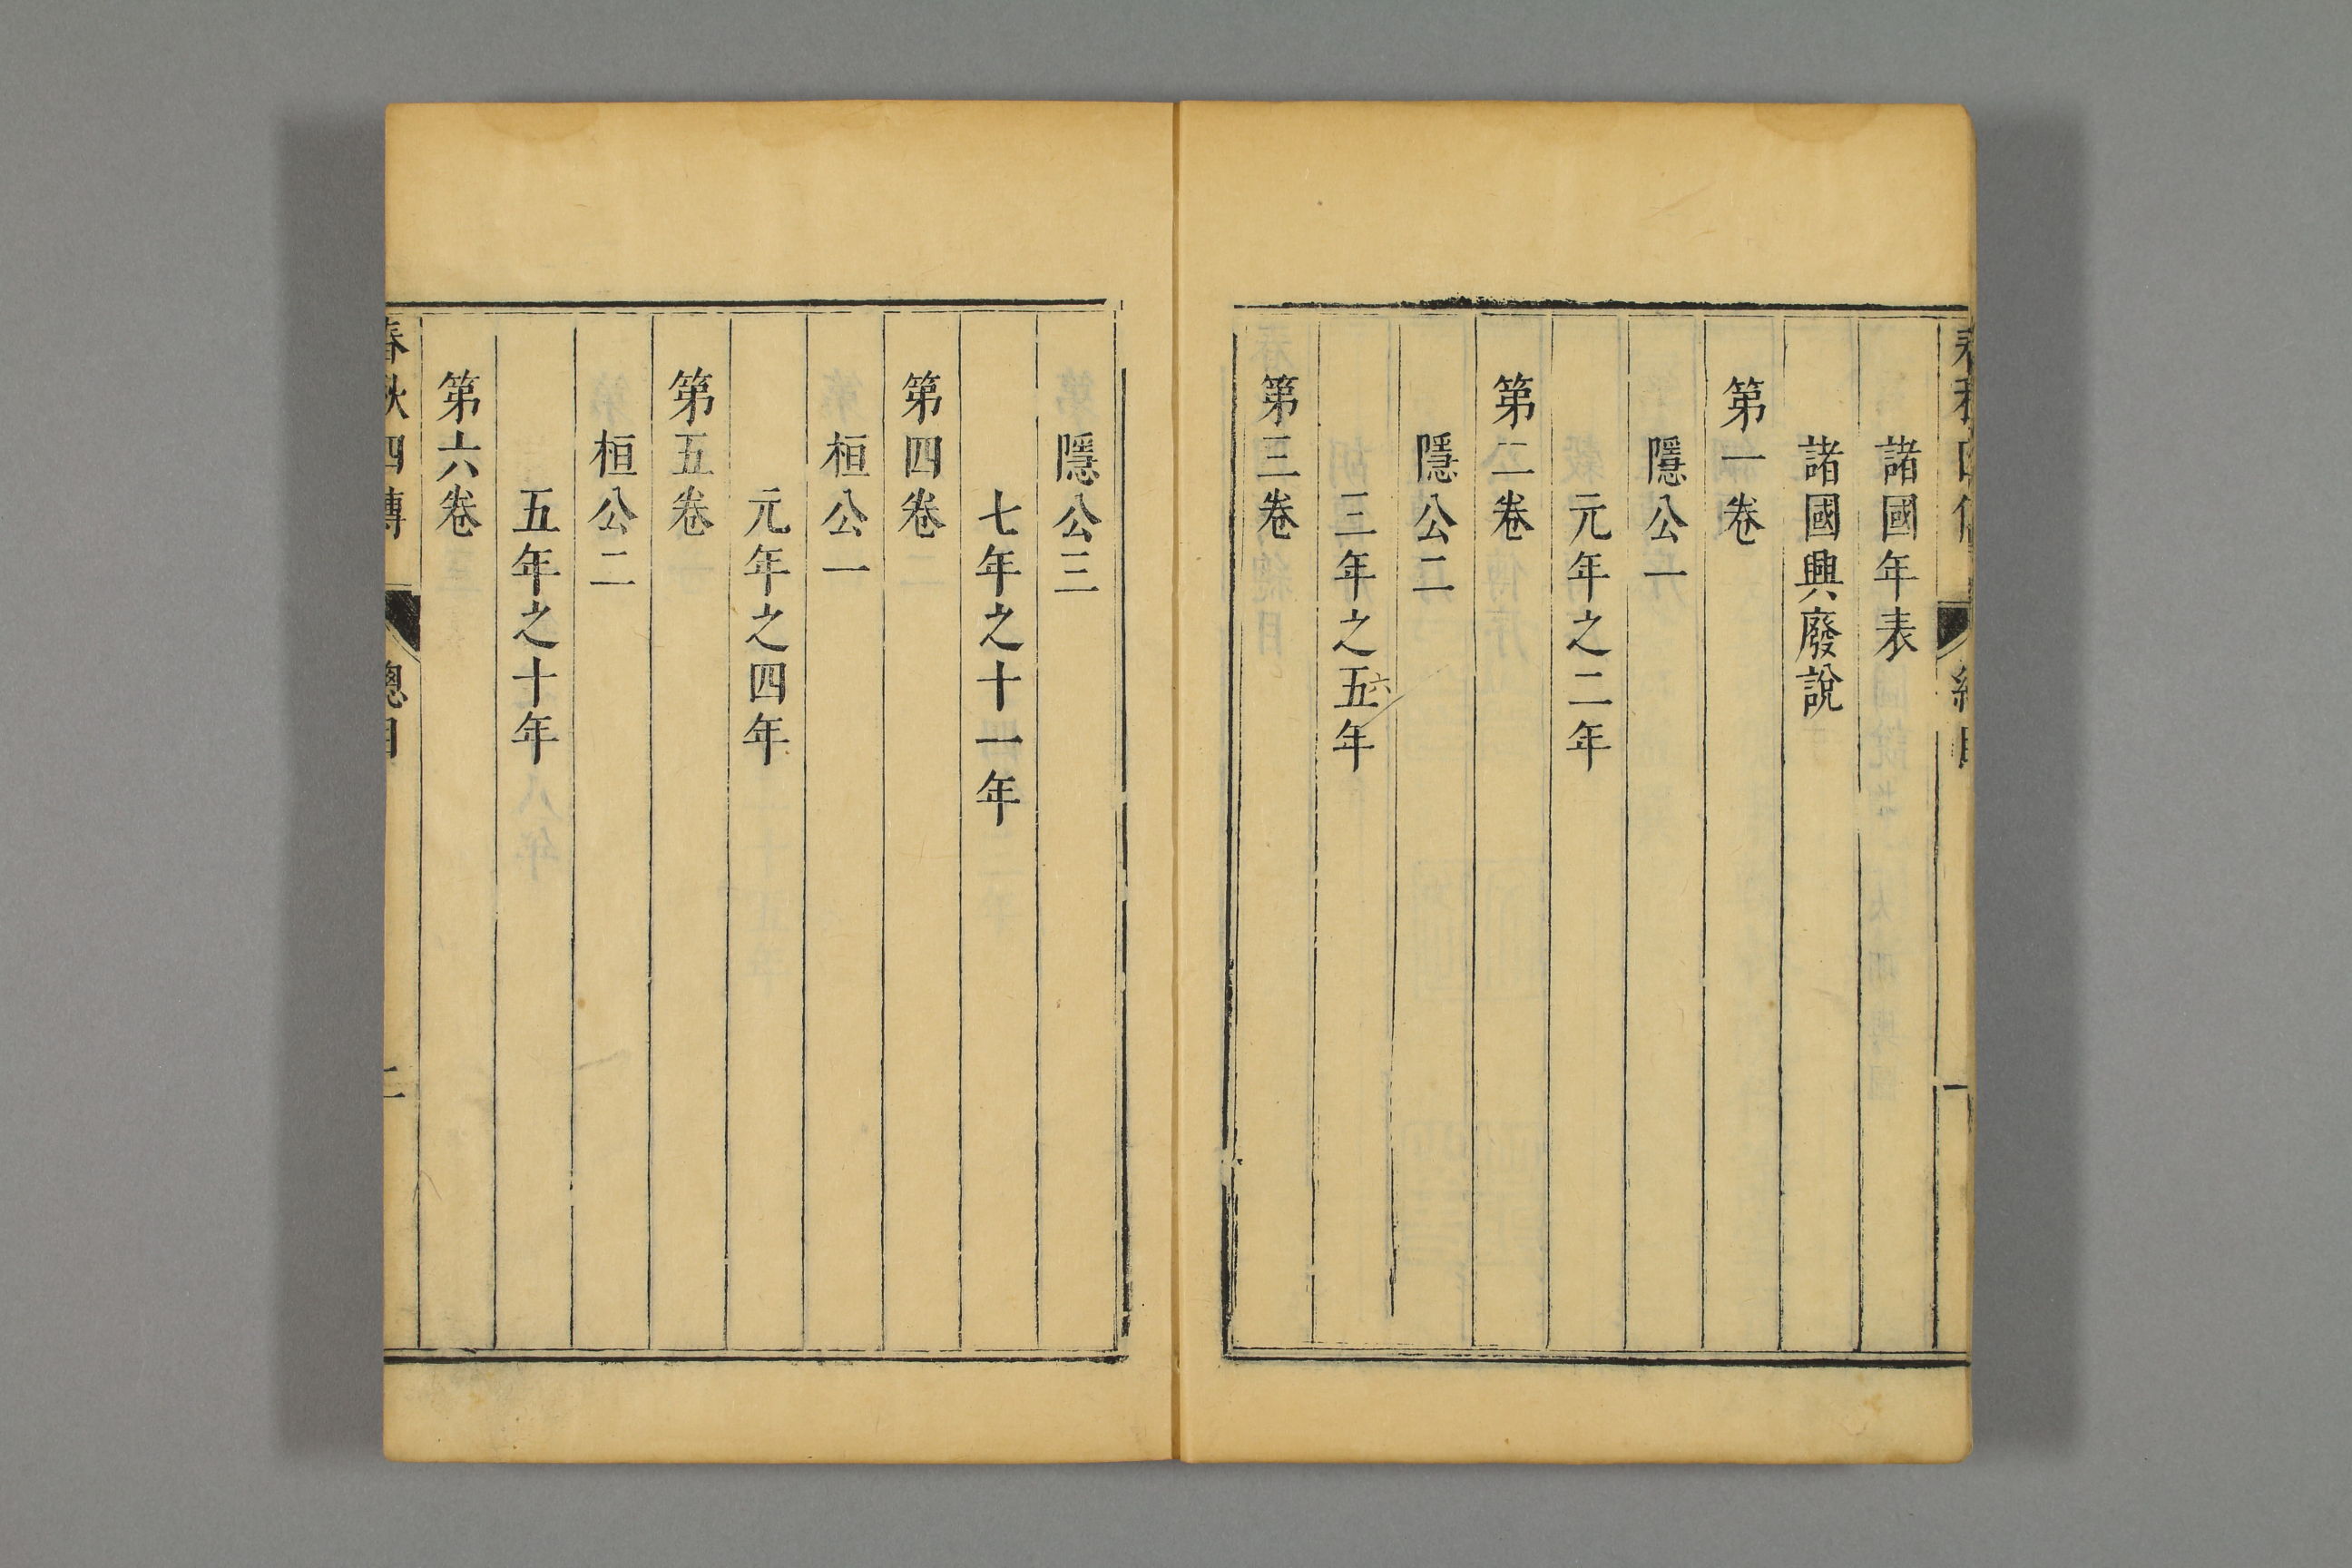 諸國年表
諸國興廢說
第一卷
隱公一
元年之二年
第二卷
隱公二
三年之五年
六
第三卷
隱公三
七年之十一年
第四卷
桓公一
元年之四年
第五卷
桓公二
五年之十年
第六卷
春秋四傳
總目
二